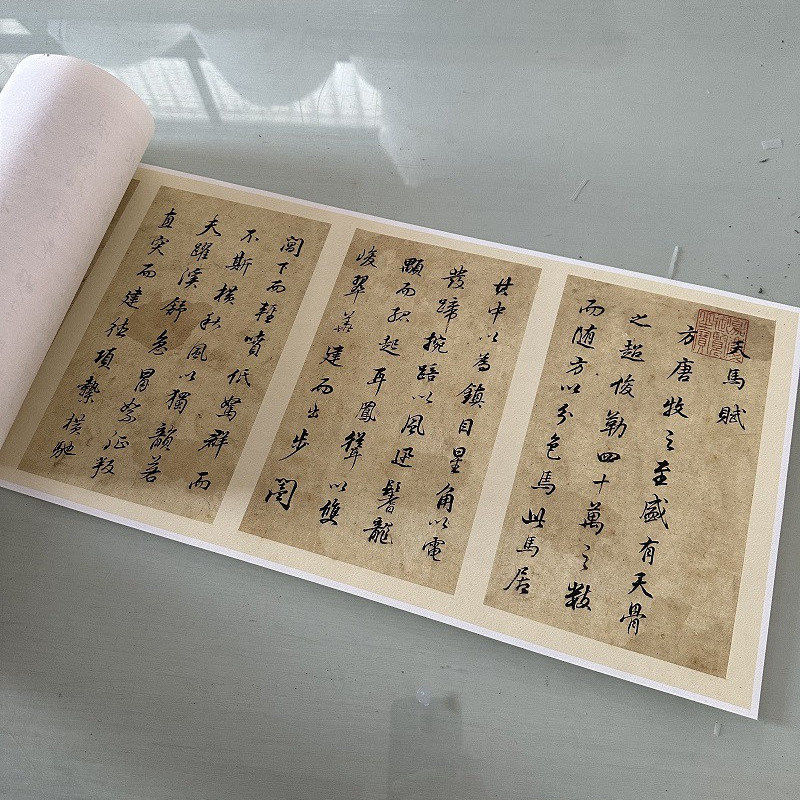 天馬賦
方唐牧之至盛有天骨
之超俊勒四十萬之數
而随方以分色馬此馬居
其中以為鎮目星角以電
發蹄椀踣以風迅鬐龍
顒而孤起耳鳳聳以雙
峻翠華建而出步閶
闔下而輕噴低駑群而
不斯横秋風以獨韻若
夫躍溪舒急冒絮征叛
直突而建德項縶横馳